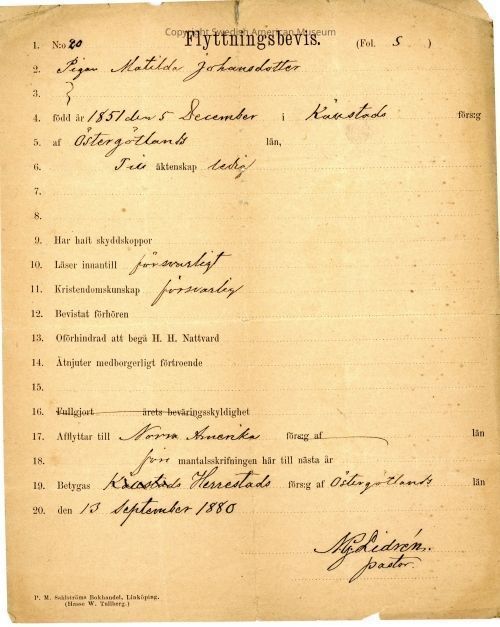 Copyright Swedish American Museum
Flyttningsbevis.
1. N:o 20 (Fol. 5 )
2. Pigan Matilda Johansdotter
3.
4. född år 1851 den 5 December i Källstads förs:g
5. af Östergötlands län,
6. Till äktenskap ledig
7.
8.
9. Har haft skyddskoppor
10. Läser innantill försvarligt
11. Kristendomskunskap försvarlig
12. Bevistat förhören
13. Oförhindrad att begå H. H. Nattvard
14. Åtnjuter medborgerligt förtroende
15.
16. Fullgjort årets beväringsskyldighet
17. Afflyttar till Norra Amerika förs:g af län
18. före mantalsskrifningen här till nästa år
19. Betygas Källstads Herrestads förs:g af Östergötlands län
20. den 13 September 1880
Lidrén.
pastor.
P. M. Sahlströms Bokhandel, Linköping.
(Hasse W. Tullberg.)